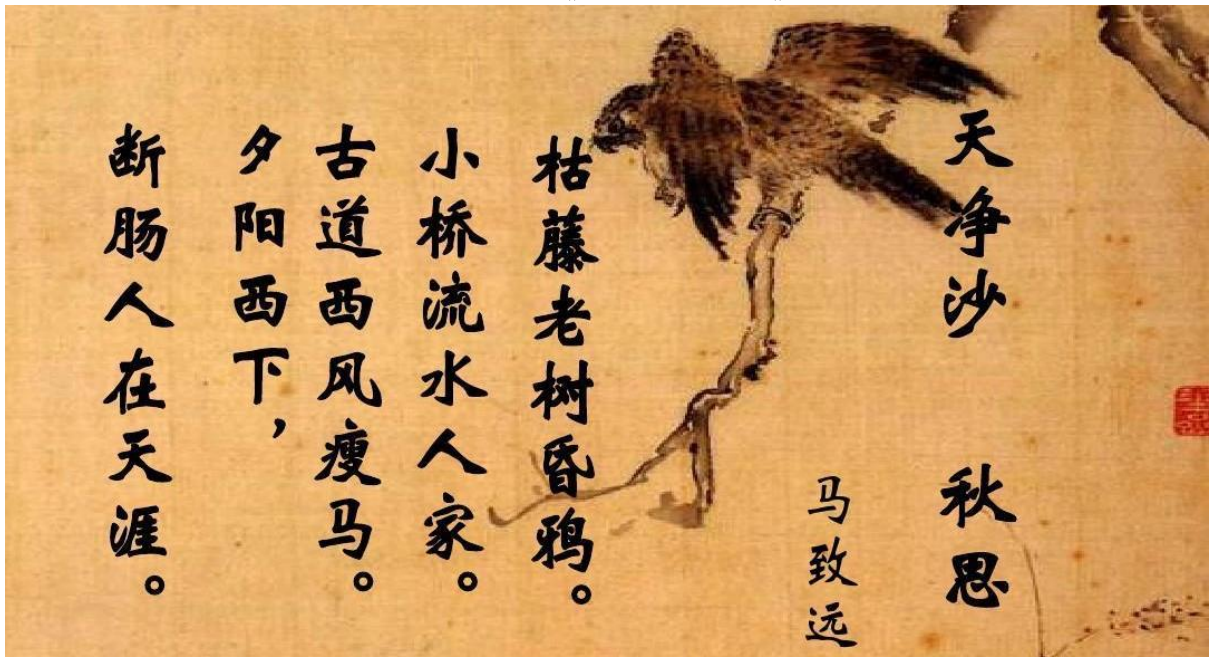 天净沙 秋思
马致远
枯藤老树昏鸦。
小桥流水人家。
古道西风瘦马。
夕阳西下，
断肠人在天涯。